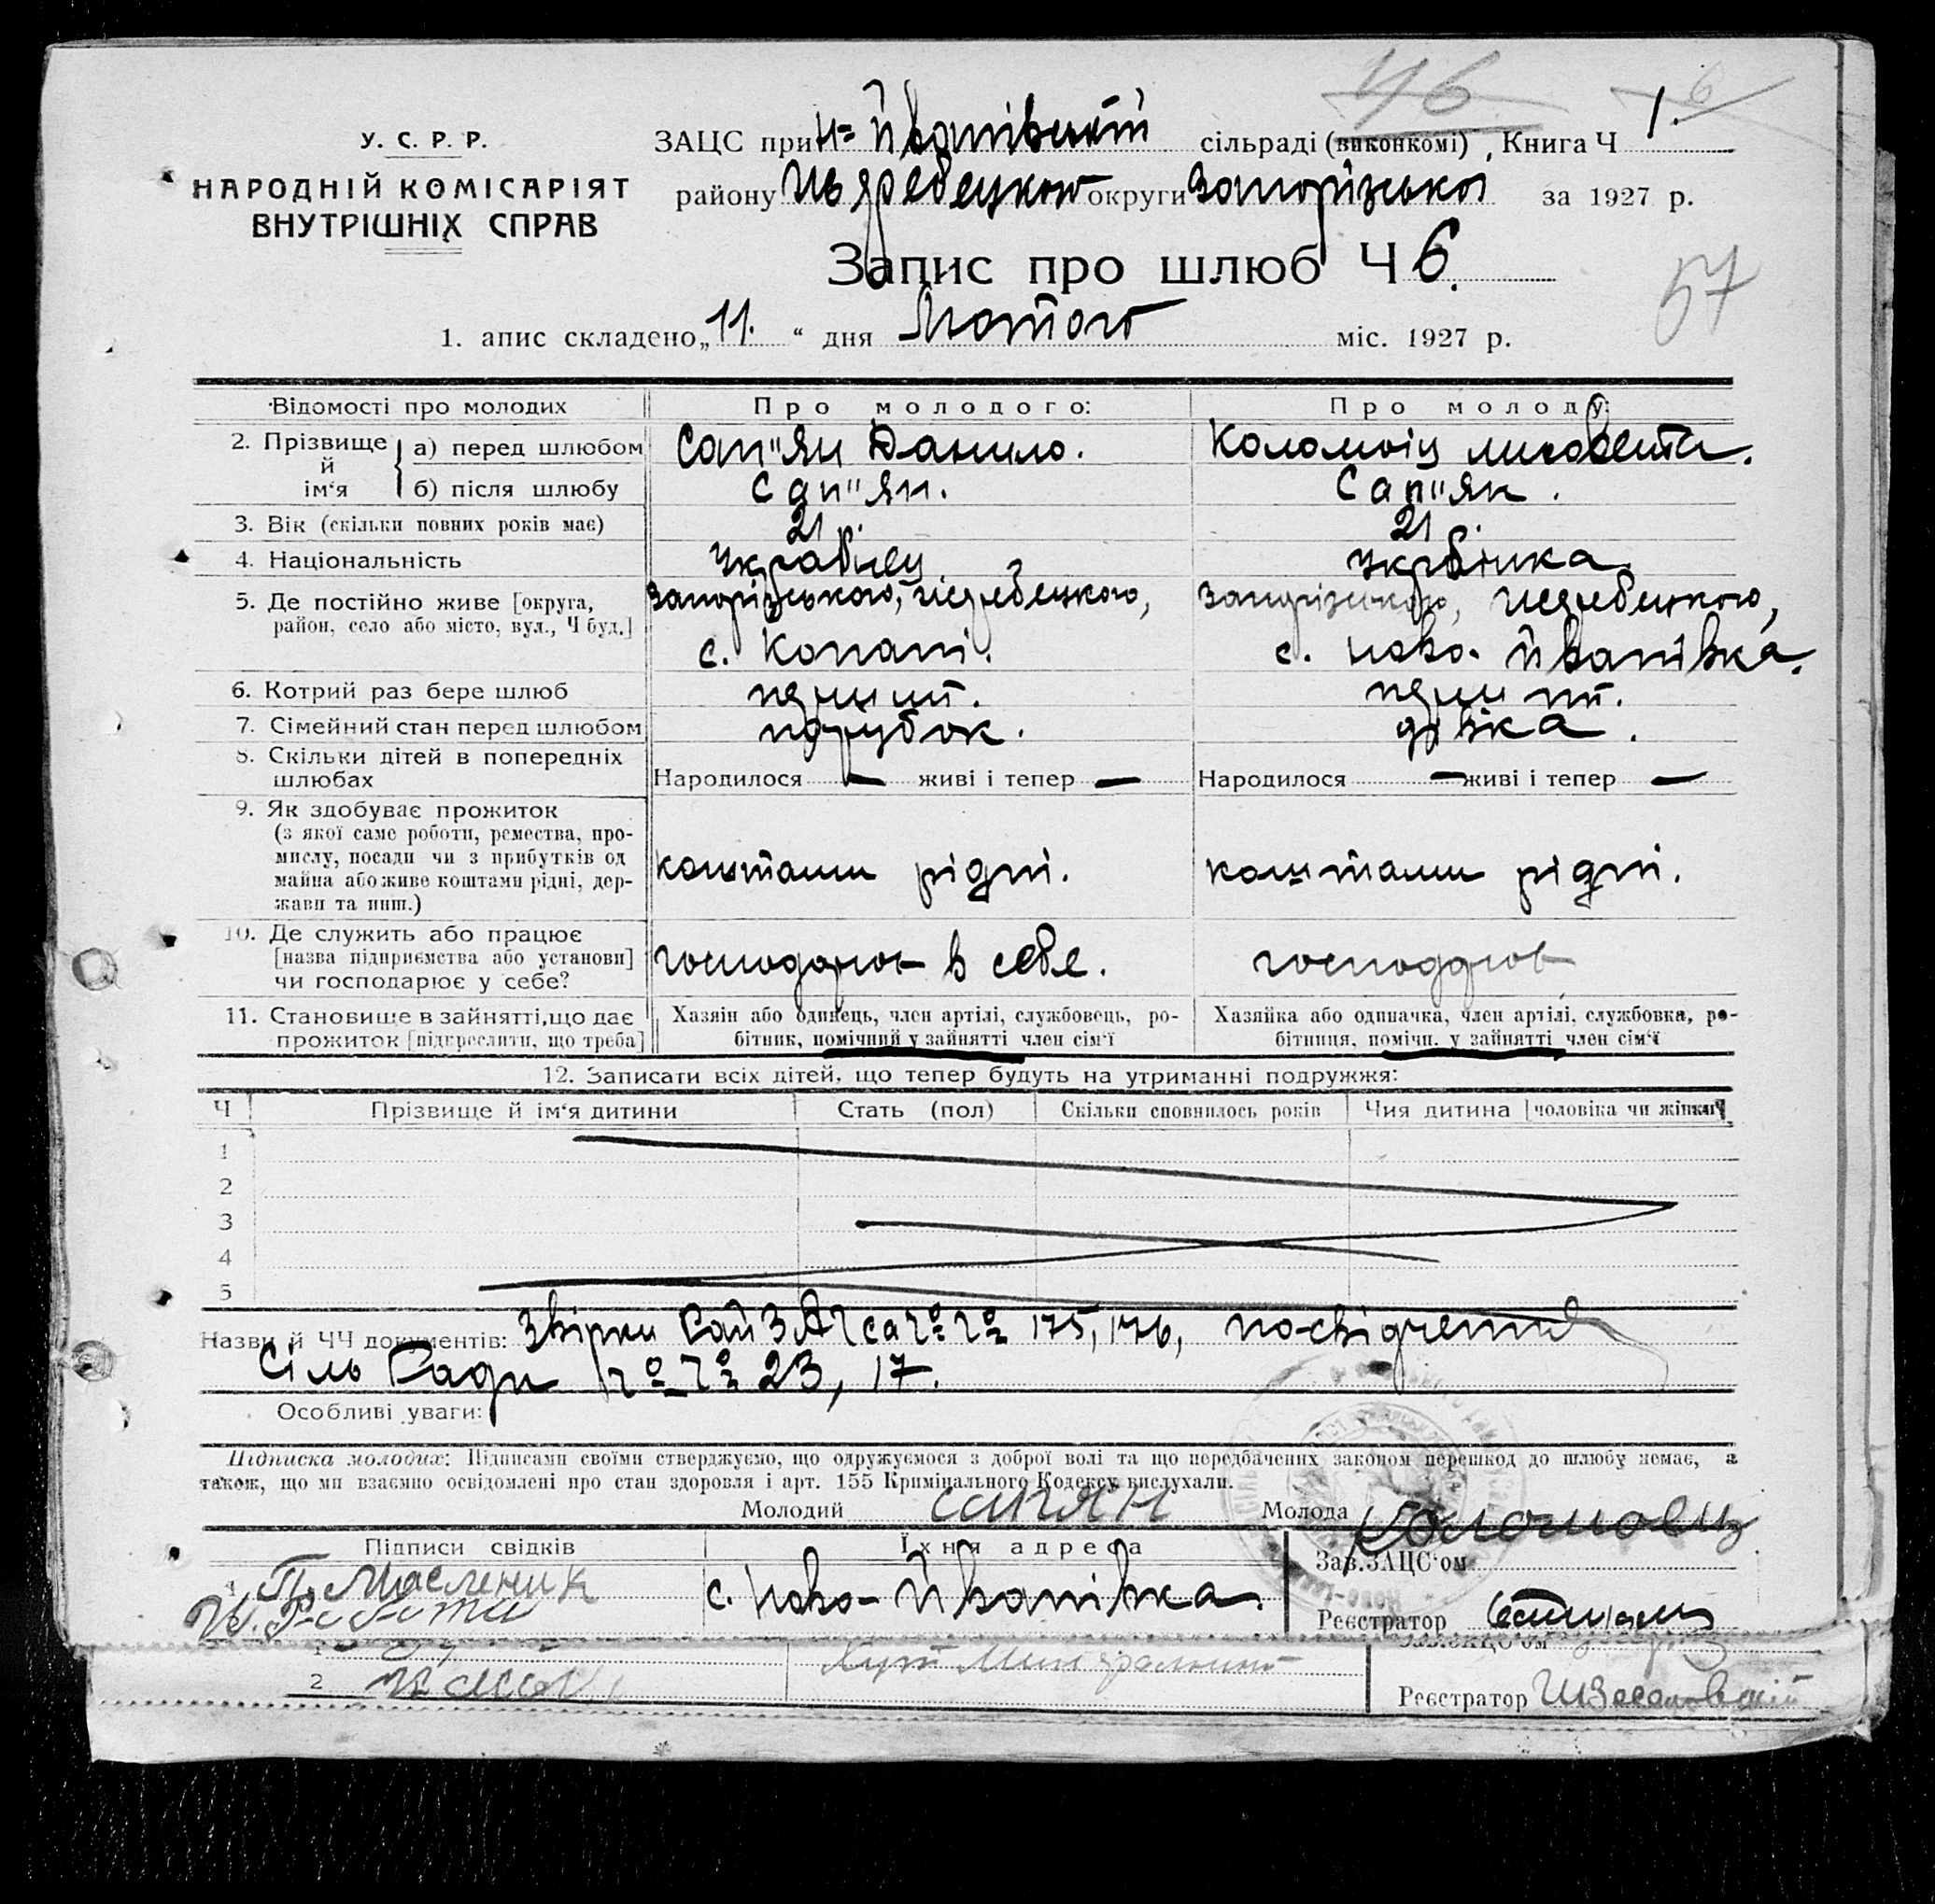 46 6
У. С. Р. Р.
НАРОДНІЙ КОМІСАРІЯТ
ВНУТРІШНІХ СПРАВ
ЗАЦС при Н= Йванівській сільраді (виконкомі), Книга Ч 1.
району округи Запорізької за 1927 р.
Запис про шлюб Ч 6.
57
1. апис складено „ 11. “ дня Лютого міс. 1927 р.
Відомості про молодих Про молодого: Про молоду:
2. Прізвище й ім‘я а) перед шлюбом Сап"ян Данило. Коломоіц Лисовента.
б) після шлюбу Сап"ян. Сап"ян.
3. Вік (скільки повних років має) 21 р. 21 р.
4. Національність
5. Де постійно живе [округа, район, село або місто, вул., Ч буд.]
с. Копані. с. Ново-Йванівка.
6. Котрий раз бере шлюб
7. Сімейний стан перед шлюбом парубок. дівка.
8. Скільки дітей в попередніх шлюбах Народилося — живі і тепер — Народилося — живі і тепер —
9. Як здобуває прожиток
(з якої саме роботи, ремества, про-
мислу, посади чи з прибутків од
майна або живе коштами рідні, дер-
жави та инш.)
коштами рідні. коштами рідні.
10. Де служить або працює
[назва підприємства або установи]
чи господарює у себе?
господарює в себе. господарює
11. Становище в зайнятті, що дає
прожиток [підкреслити, що треба]
Хазяін або одинець, член артілі, службовець, ро-
бітник, помічний у зайнятті член сім‘ї
Хазяйка або одиначка, член артілі, службовка, ро-
бітниця, помічн. у зайнятті член сім‘ї
12. Записати всіх дітей, що тепер будуть на утриманні подружжя:
Ч Прізвище й ім‘я дитини Стать (пол) Скільки сповнилось років Чия дитина [чоловіка чи жінки]
1
2
3
4
5
Назви й ЧЧ документів: Звірки Рай ЗАГса №№ 175, 176, посвідчення
Сіль Ради №№ 23, 17.
Особливі уваги:
Підписка молодих: Підписами своїми стверджуємо, що одружуємося з доброї волі та що передбачених законом перешкод до шлюбу немає, а
також, що ми взаємно освідомлені про стан здоровля і арт. 155 Кримінального Кодексу вислухали.
Молодий Сапян Молода Коломоец
Підписи свідків Їхня адреса Зав.ЗАЦС‘ом
1 П. Масленик с. Ново-Йванівка.
Реєстратор
1
2
Реєстратор